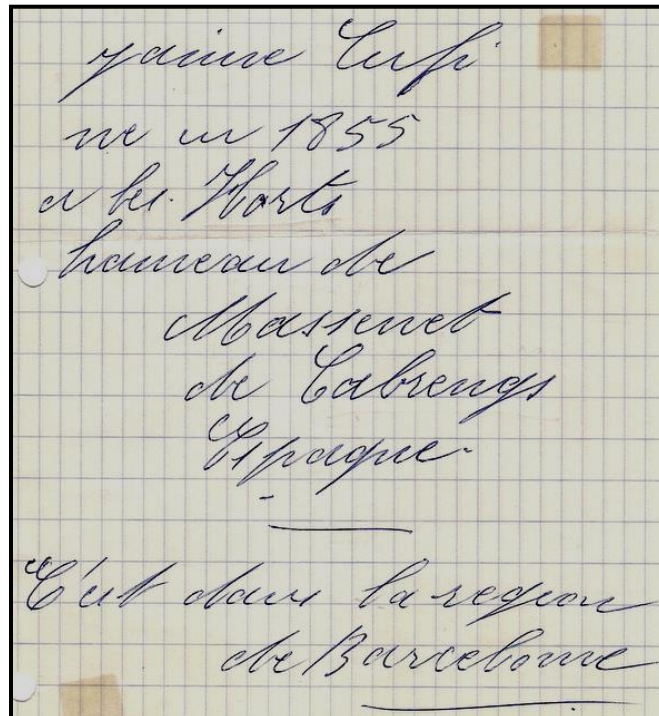 Jaime Cufi
né en 1855
a les Horts
hameau de
Massenet
de Cabrengs
Espagne.
C'est dans la region
de Barcelone